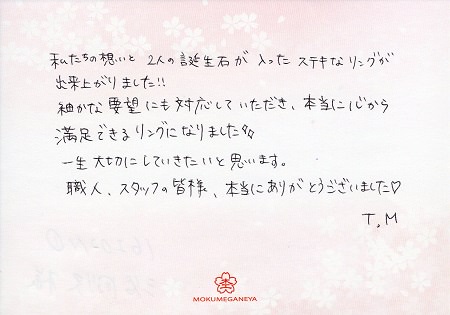 私たちの想いと 2人の誕生石が 入った ステキなリングが
出来上がりました!!
細かな要望にも対応していただき、本当に心から
満足できるリングになりました
一生大切にしていきたいと思います。
職人、スタッフの皆様、本当にありがとうございました♡
T,M
MOKUMEGANEYA